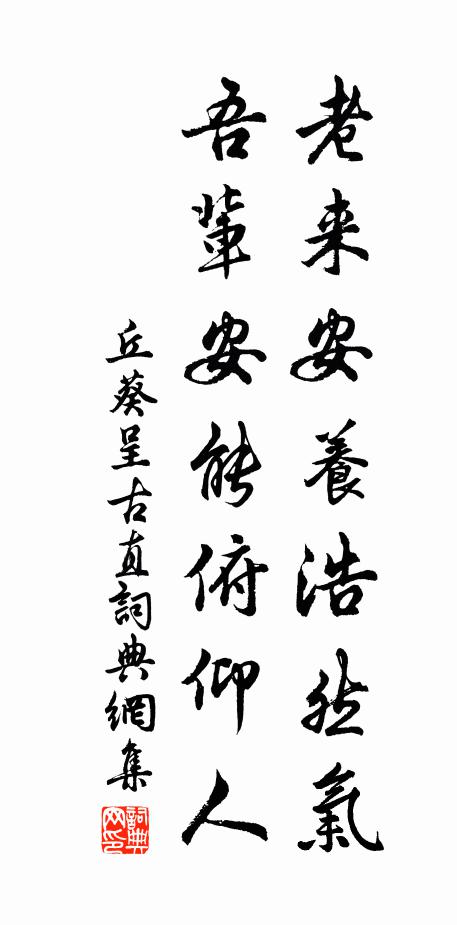 老来安養浩然氣
吾輩安能俯仰人
丘葵呈古直詞典網集
詞典
网印